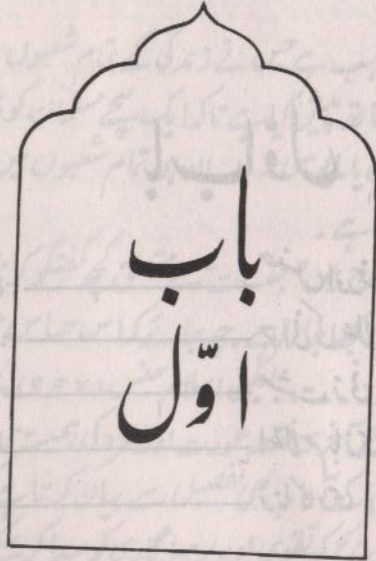 باب
اوّل